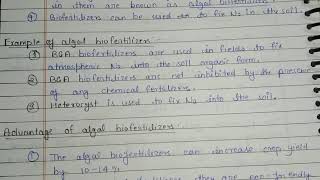 in them are known as algal biofertilizers.
④ Biofertilizers can be used to fix N2 in the soil.
Example of algal biofertilizer:-
① BGA biofertilizers are used in fields to fix
atmospheric N2 into the soil organic form.
② BGA biofertilizers are not inhibited by the presence
of any chemical fertilizers.
③ Heterocyst is used to fix N2 into the soil.
Advantage of algal biofertilizers:-
① The algal biofertilizers can increase crop yield
by 10-14%
they are eco-friendly